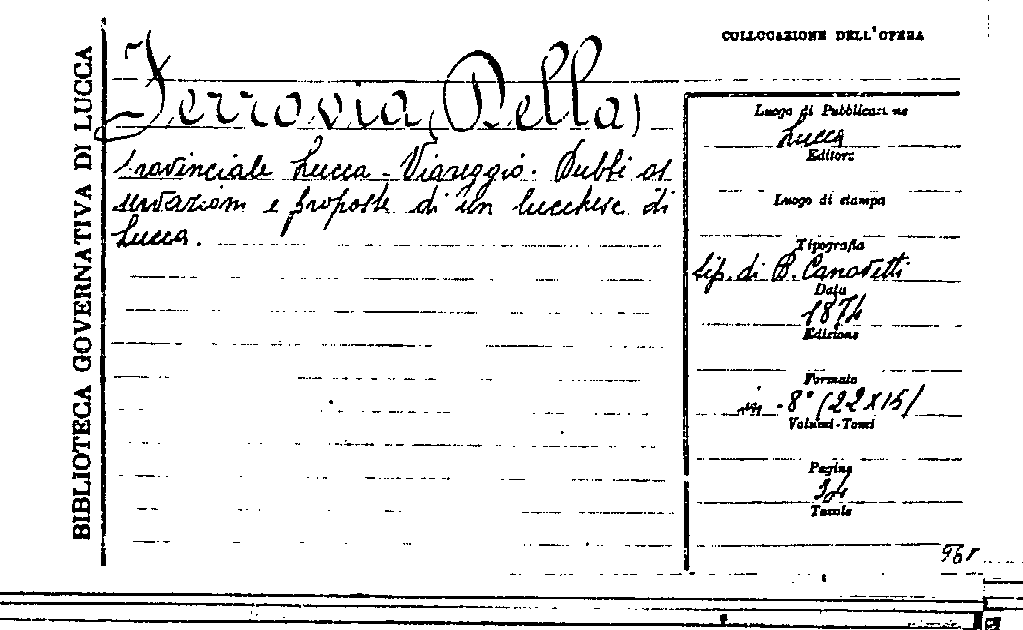 BIBLIOTECA GOVERNATIVA DI LUCCA
COLLOCAZIONE DELL'OPERA
Ferrovia (Della)
provinciale Lucca - Viareggio. Dubbi os
servazioni e proposte di un lucchese di
Lucca.
Luogo di Pubblicazione
Lucca
Editore
Luogo di stampa
Tipografia
tip. di B. Canovetti
Data
1874
Edizione
Formato
in -8° (22x15)
Volumi-Tomi
Pagine
Tavole